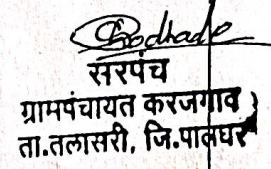 सरपंच
ग्रामपंचायत करजगाव
ता.तलासरी, जि.पालघर